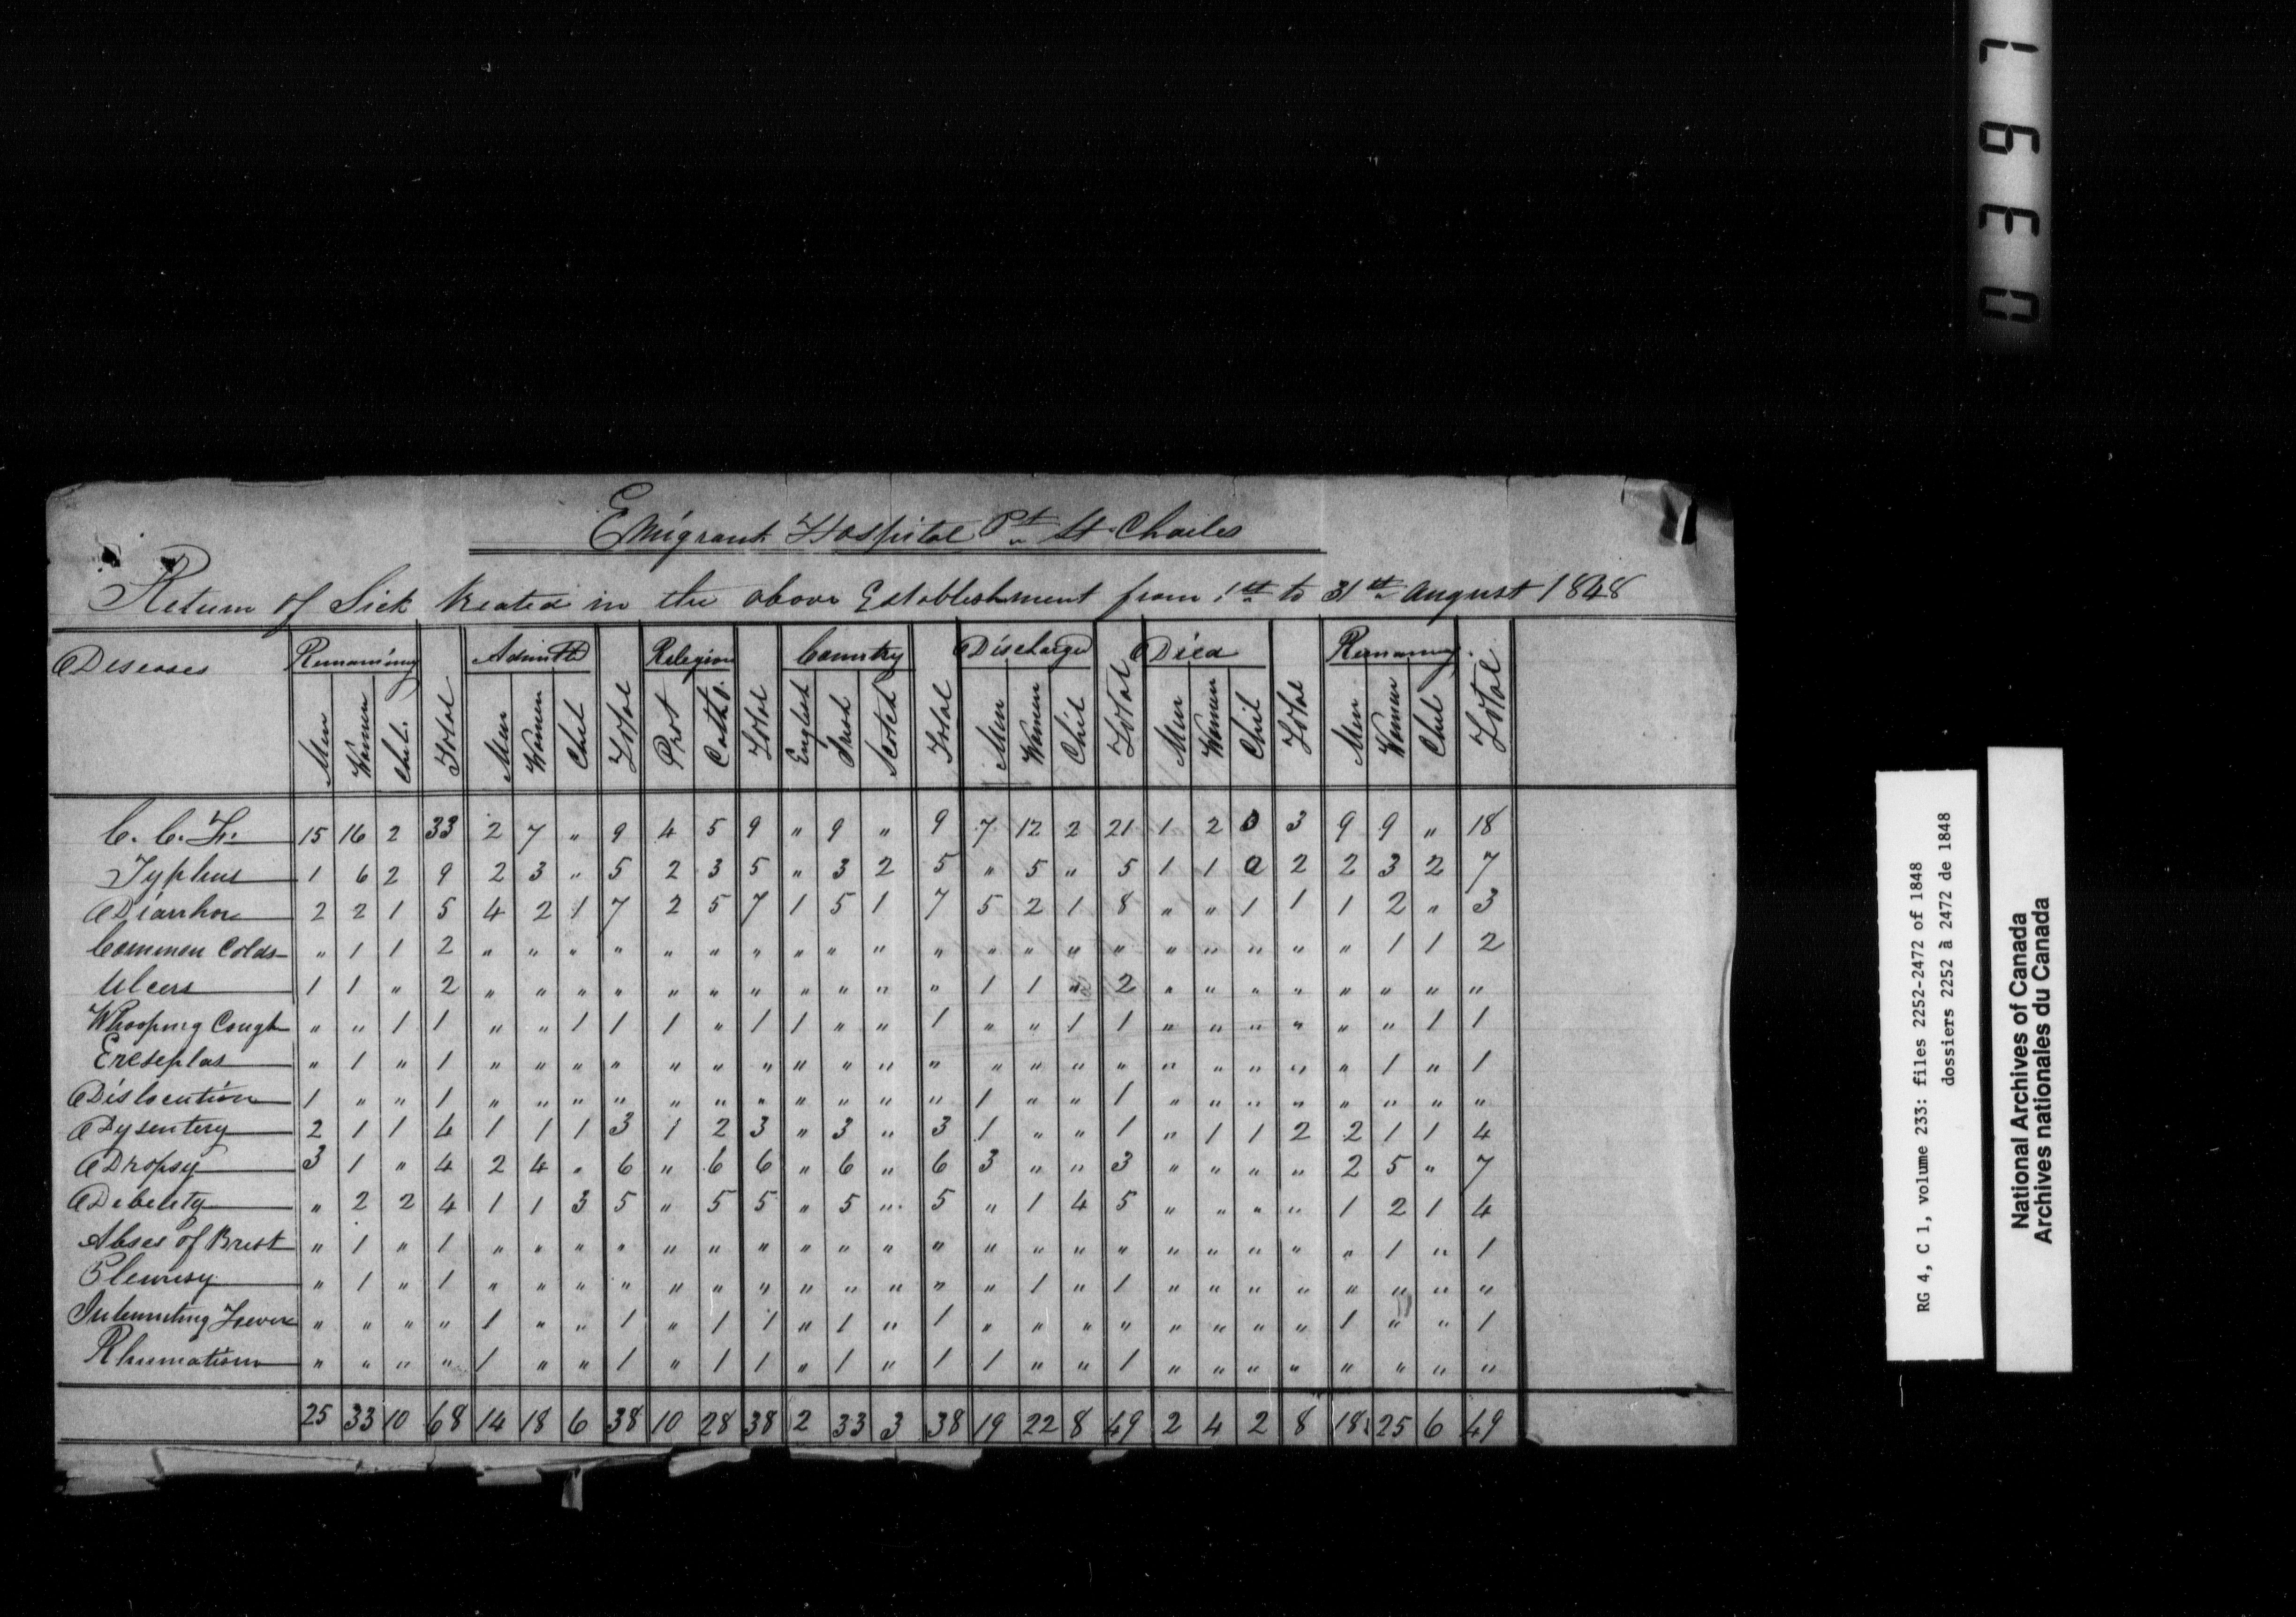 Emigrant Hospital Pt St Charles
Return of Sick treated in the above Establishment from 1st to 31st August 1848
Diseases Remaining Admittd Religion Country Discharged Died Remaining
Men Women Chil. Total Men Women Chil Total Prot Catho. Total English Irish Scotch Total Men Women Chil Total Men Women Chil Total Men Women Chil Total
C. C. F. 15 16 2 33 2 7 " 9 4 5 9 " 9 " 9 7 12 2 21 1 2 0 3 9 9 " 18
Typhus 1 6 2 9 2 3 " 5 2 3 5 " 3 2 5 " 5 " 5 1 1 0 2 2 3 2 7
Diarrhoe 2 2 1 5 4 2 1 7 2 5 7 1 5 1 7 5 2 1 8 " " 1 1 1 2 " 3
Common Colds " 1 1 2 " " " " " " " " " " " " " " " " " " " " 1 1 2
Ulcers 1 1 " 2 " " " " " " " " " " " 1 1 " 2 " " " " " " " "
Whooping Cough " " 1 1 " " 1 1 1 " 1 1 " " 1 " " 1 1 " " " " " " 1 1
Ereseplas " 1 " 1 " " " " " " " " " " " " " " " " " " " " 1 " 1
Dislocution 1 " " 1 " " " " " " " " " " " 1 " " 1 " " " " " " " "
Dysentery 2 1 1 4 1 1 1 3 1 2 3 " 3 " 3 1 " " 1 " 1 1 2 2 1 1 4
Dropsy 3 1 " 4 2 4 " 6 " 6 6 " 6 " 6 3 " " 3 " " " " 2 5 " 7
Debelety " 2 2 4 1 1 3 5 " 5 5 " 5 " 5 " 1 4 5 " " " " 1 2 1 4
Abses of Brest " 1 " 1 " " " " " " " " " " " " " " " " " " " " 1 " 1
Pleurisy " 1 " 1 " " " " " " " " " " " " 1 " 1 " " " " " " " "
" " " " 1 " " 1 " 1 1 " 1 " 1 " " " " " " " " 1 " " 1
Rhumatism " " " " 1 " " 1 " 1 1 " 1 " 1 1 " " 1 " " " " " " " "
25 33 10 68 14 18 6 38 10 28 38 2 33 3 38 19 22 8 49 2 4 2 8 18 25 6 49
0397
RG 4, C 1, volume 233: files 2252-2472 of 1848
dossiers 2252 à 2472 de 1848
National Archives of Canada
Archives nationales du Canada